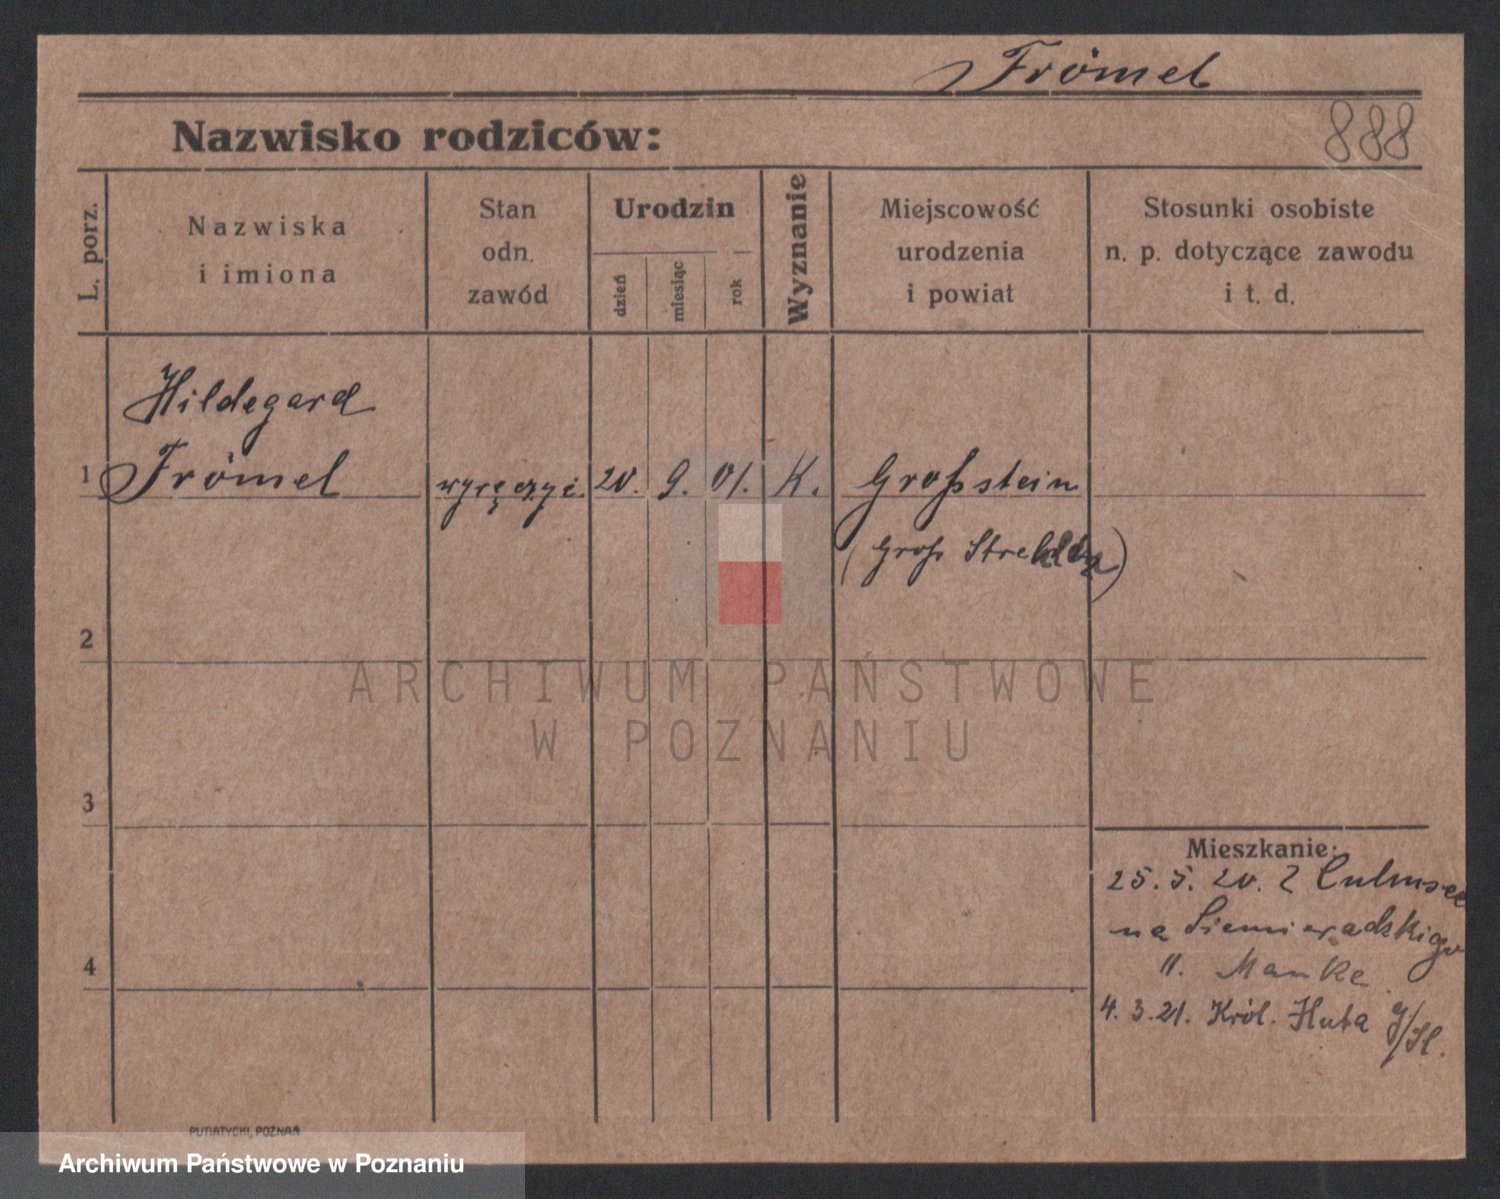 Frömel
Nazwisko rodziców:
888
L. porz.
Nazwiska
i imiona
Stan
odn.
zawód
Urodzin
dzień
miesiąc
rok
Wyznanie
Miejscowość
urodzenia
i powiat
Stosunki osobiste
n. p. dotyczące zawodu
i t. d.
Hildegard
1 Frömel wyręczyc. 20. 9. 01. K. Großstein
(Groß Strehlitz)
2
3
4
Mieszkanie:
25. 5. 20. Z Culmsee
na Siemieradzkiego
11. Manke
4. 3. 21. Król. Huta g/Sl.
PUTIATYCKI, POZNAŃ
ARCHIWUM PAŃSTWOWE
W POZNANIU
Archiwum Państwowe w Poznaniu